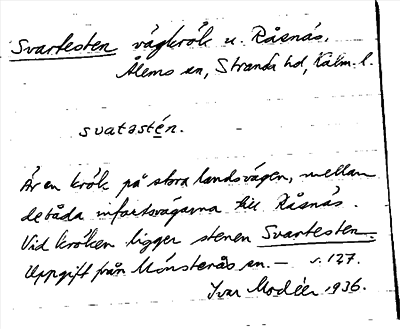 Svartesten vägkrök u. Råsnäs,
Ålems sn, Stranda hd, Kalm. l.
svatastén.
Är en krök på stora landsvägen, mellan
de båda infartsvägarna till Råsnäs.
Vid kröken ligger stenen Svartesten.
Uppgift från Mönsterås sn. — s. 127.
Ivar Modéer 1936.